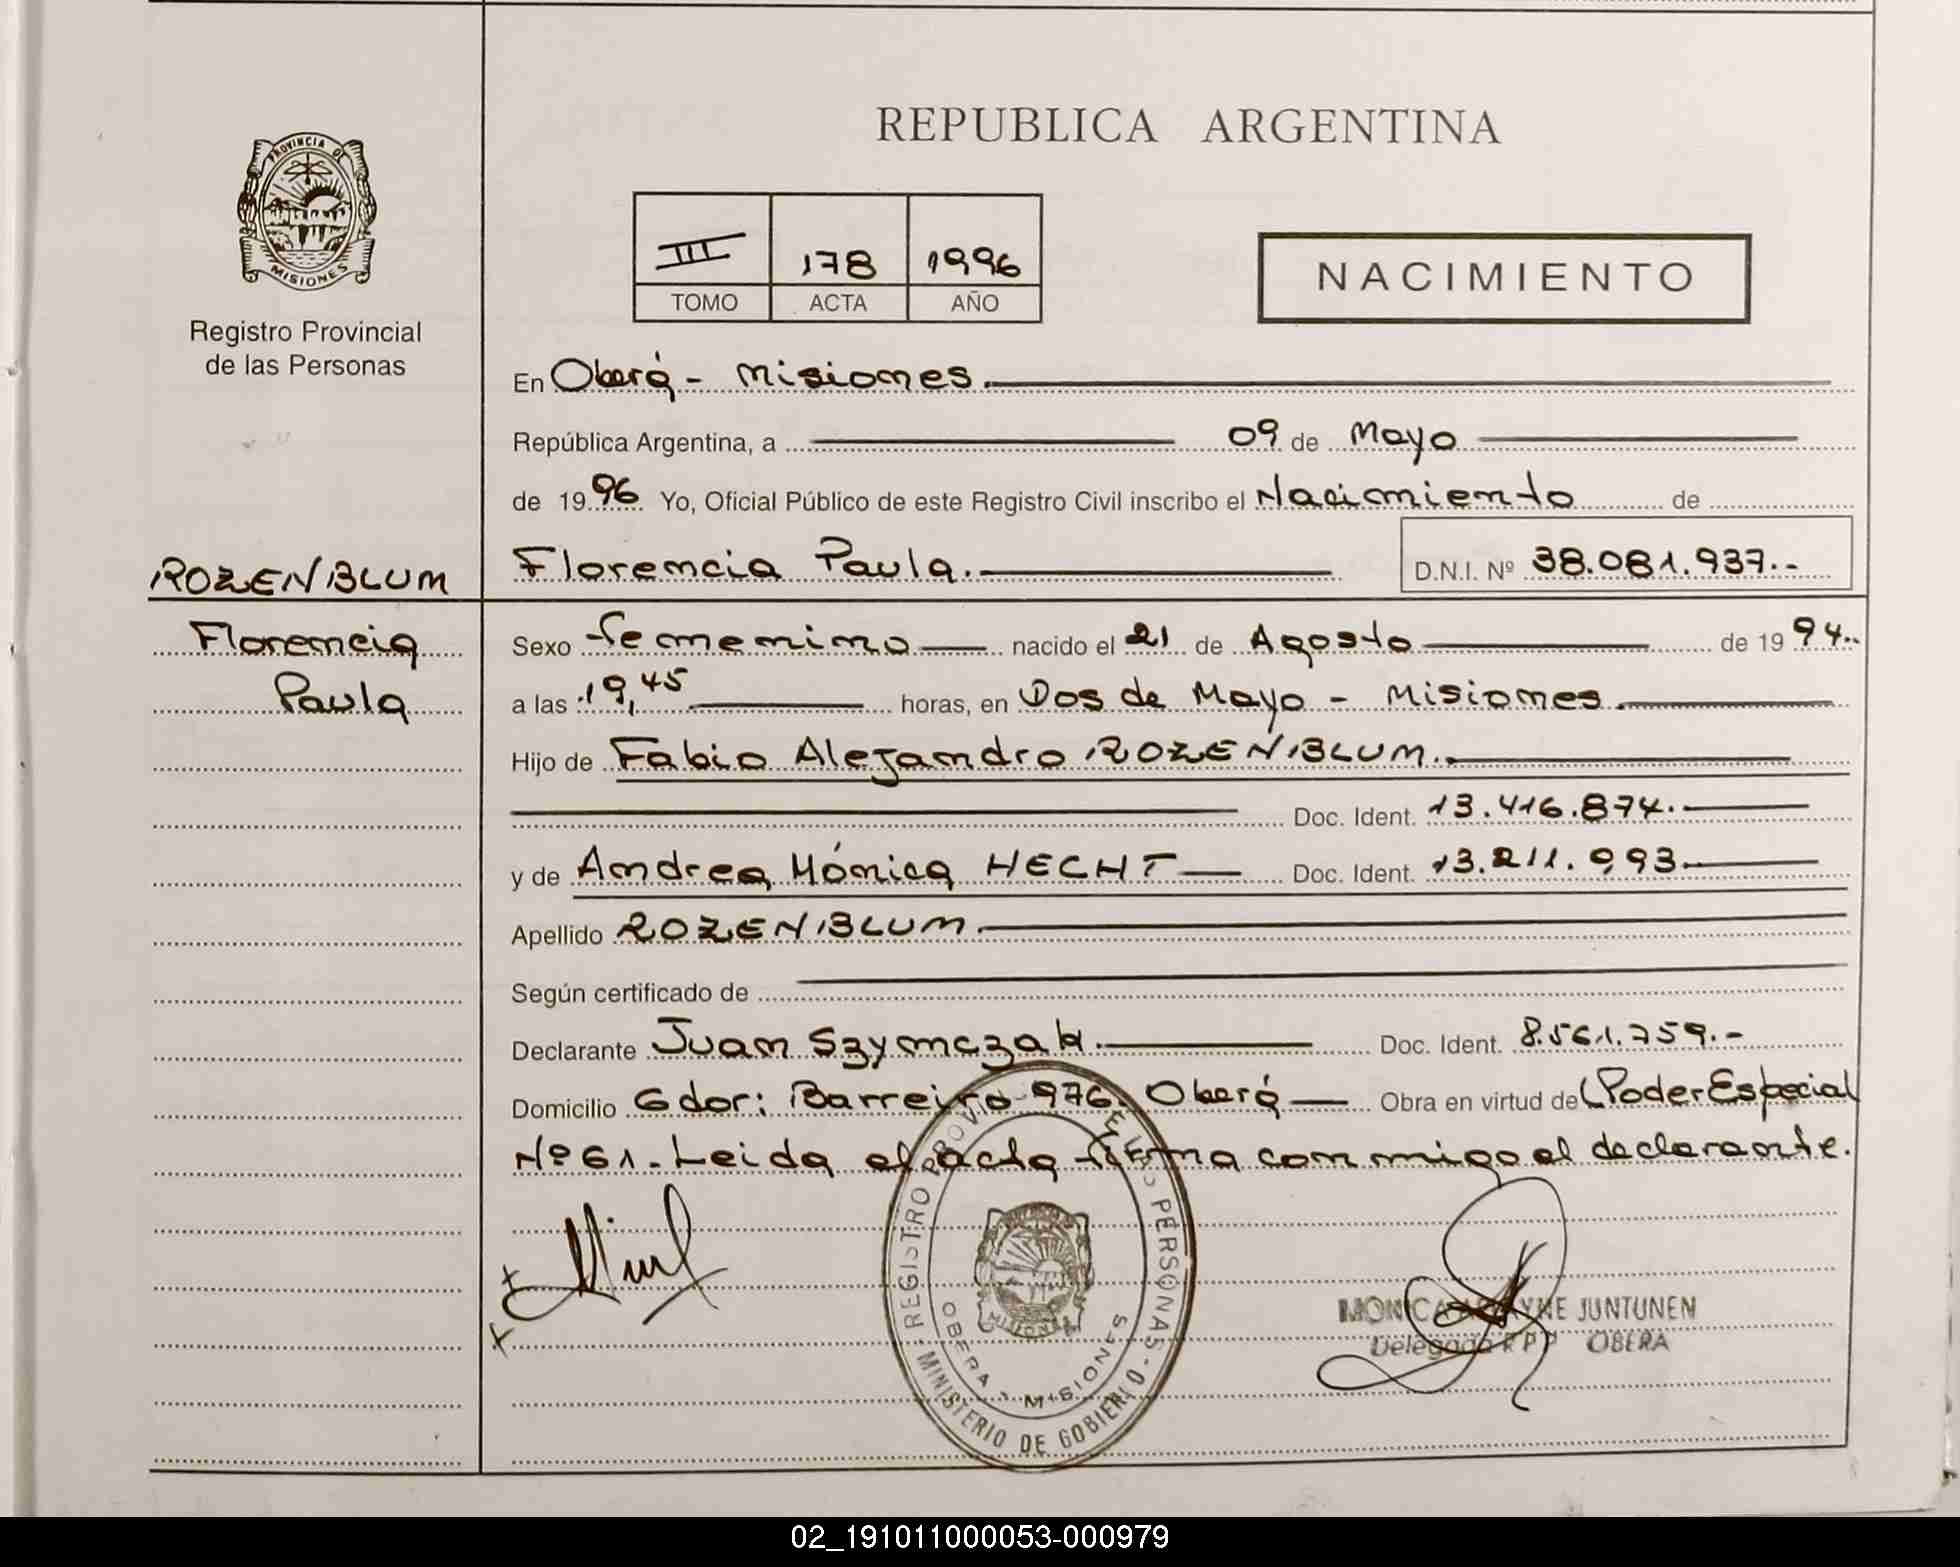 PROVINCIA DE
MISIONES
Registro Provincial
de las Personas
ROZENBLUM
Florencia
Paula
REPUBLICA ARGENTINA
III 178 1996
TOMO ACTA AÑO
NACIMIENTO
En Oberá - Misiones.
República Argentina, a 09 de Mayo
de 1996 Yo, Oficial Público de este Registro Civil inscribo el Nacimiento de
Florencia Paula. D.N.I. Nº 38.081.937.-
Sexo femenino nacido el 21 de Agosto de 1994.
a las 19,45 horas, en Dos de Mayo - Misiones.
Hijo de Fabio Alejandro ROZENBLUM.
Doc. Ident. 13.416.874.
y de Andrea Mónica HECHT Doc. Ident. 13.211.993
Apellido ROZENBLUM.
Según certificado de
Declarante Juan Szymczak. Doc. Ident. 8.561.759.-
Domicilio Gdor: Barreiro 976, Oberá Obra en virtud de Poder Especial
Nº 61. Leida el acta firma conmigo el declarante.
REGISTRO PROVI DE LAS PERSONAS
MINISTERIO DE GOBIERNO
OBERA - MISIONES
MISIONES
MONICA YNE JUNTUNEN
Delegada R P P OBERA
02_191011000053-000979